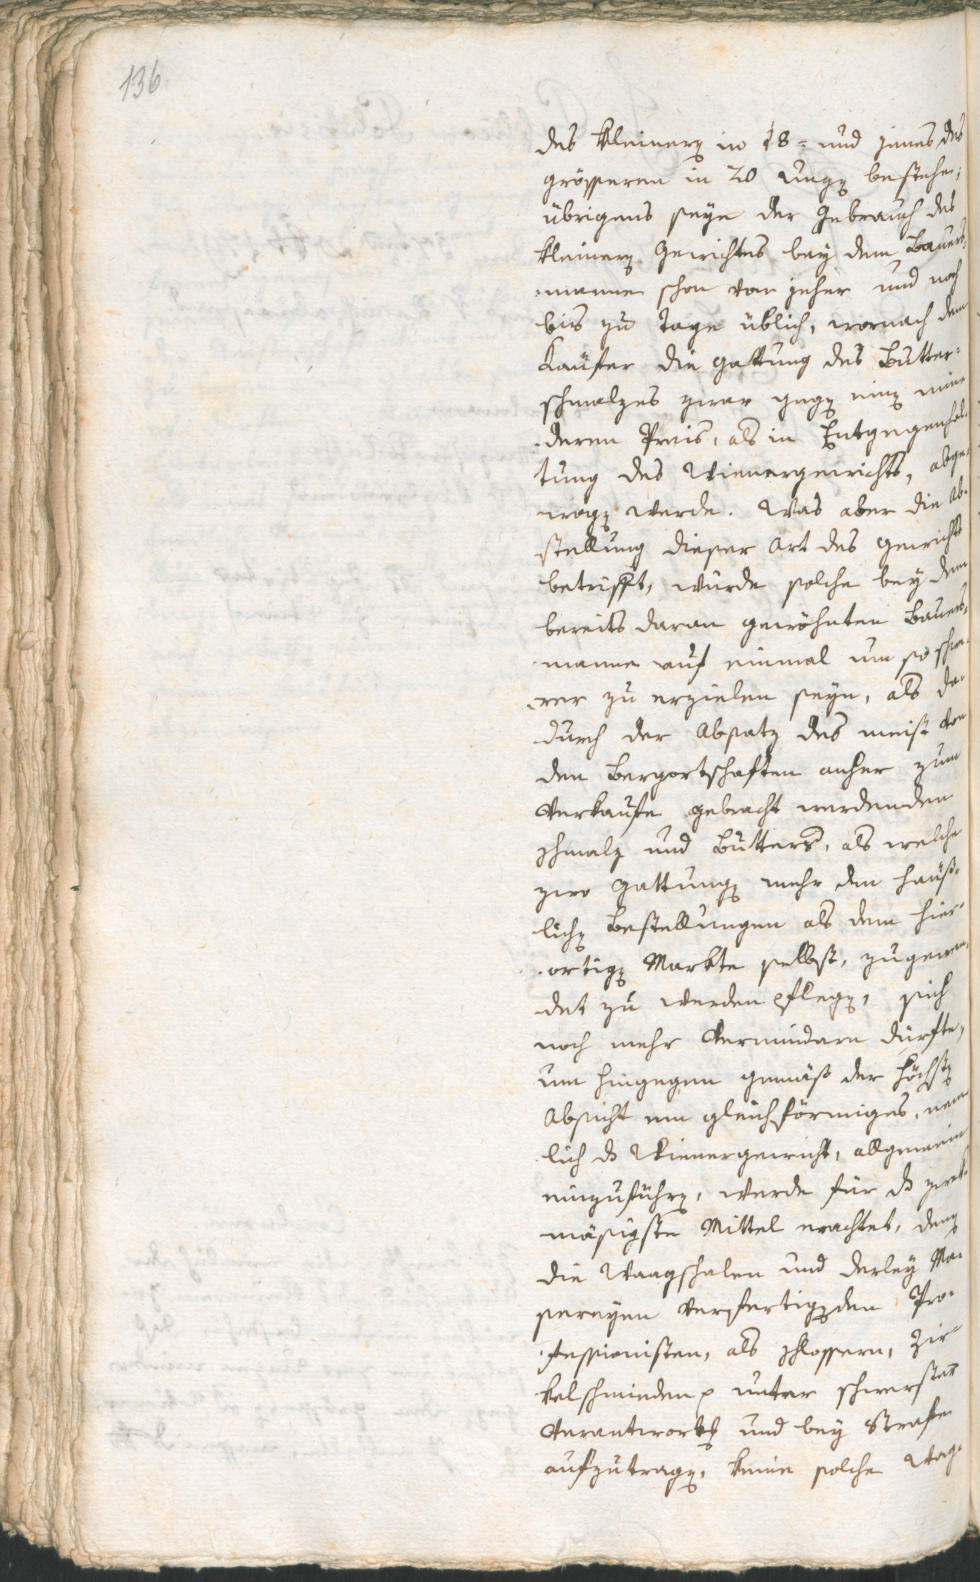 136
des kleinern in 18= und jenes des
grösseren in 20 Unzen bestehe;
übrigens seye der Gebrauch des
kleinern Gewichtes bey dem Bauers
manne schon von jeher und noch
bis zu Tage üblich, wornach dem
Käufer die Gattung des Butter=
schmalzes zwar gegen einen min
deren Preis, als in Entgegenhal
tung des Wienergewichts, abge
wogen werde. Was aber die Ab
stellung dieser Art des Gewichts
betrifft, würde solche bey dem
bereits daran gewöhnten Bauers
manne auf einmal um so schwe
rer zu erzielen seyn, als da
durch der Absatz des meist von
den Bergortschaften anher zum
Verkaufe gebracht werdenden
Schmalz und Butters, als welche
zwo Gattungen mehr den häuß
lichen Bestellungen als dem hier
ortigen Markte selbst, zugewen
det zu werden pflegen, sich
noch mehr vermindern dürfte,
um hingegen gemäß der höchsten
Absicht ein gleichförmiges, nem
lich das Wienergewicht, allgemein
einzuführen, werde für das zwek
mäsigste Mittel erachtet, denen
die Waagschalen und derley Ma
sereyen verfertigenden Pro
fessionisten, als Schlossern, Zir
kelschmieden unter schwerster
Verantwortung und bey Strafe
aufzutragen, keine solche Wag